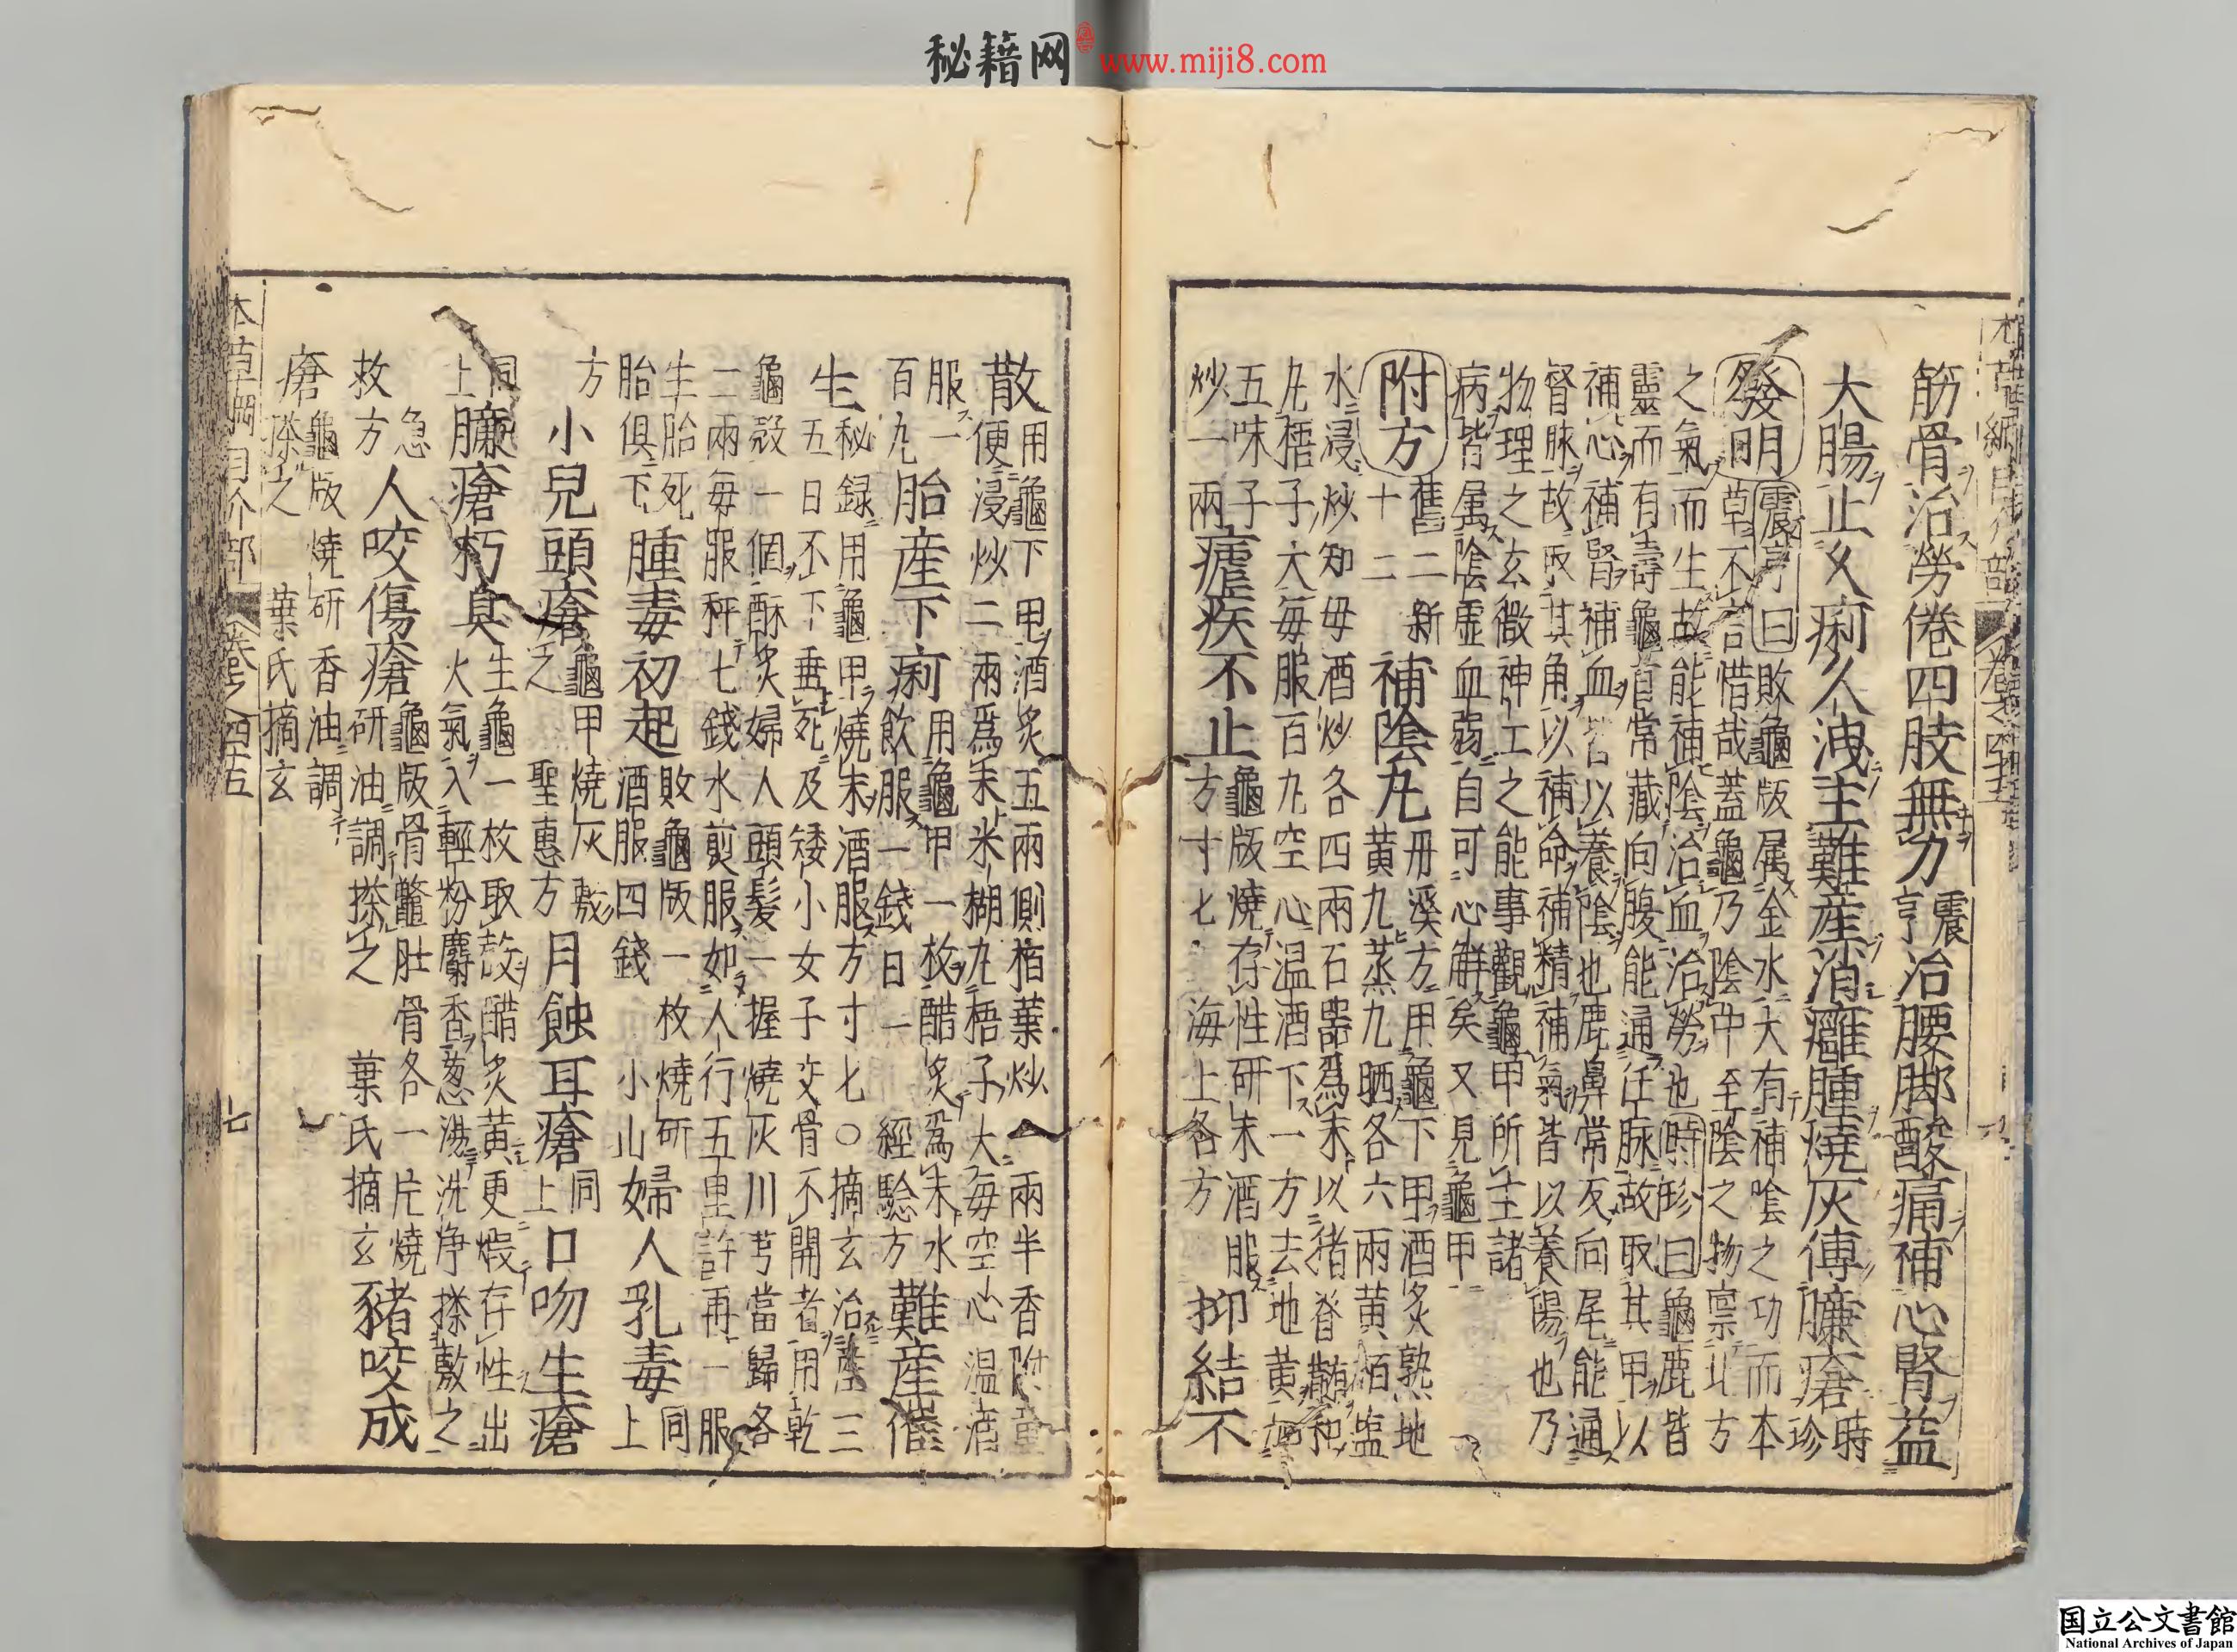 秘籍网 www.miji8.com
筋骨治勞倦四肢無力震亨治腰脚酸痛補心腎益
大腸止久痢久洩主難產消癰腫燒灰傅臁瘡時珍
發明震亨曰敗龜版属金水大有補陰之功而本
草不言惜哉蓋龜乃陰中至陰之物稟北方
之氣而生故能補陰治血治勞也時珍曰龜鹿皆
靈而有壽龜首常藏向腹能通任脉故取其甲以
補心補腎補血皆以養陰也鹿鼻常反向尾能通
督脉故取其角以補命補精補氣皆以養陽也乃
物理之玄微神工之能事觀龜甲所主諸
病皆属陰虛血弱自可心解矣又見龜甲
附方舊二新十二補陰丸丹溪方用龜下甲酒炙熟地黃九蒸九晒各六兩黃栢塩
水浸炒知母酒炒各四兩石器爲末以猪脊髓和
丸梧子大每服百丸空心温酒下一方去地黃加
五味子炒一兩瘧疾不止龜版燒存性研末酒服方寸七海上名方抑結不
散用龜下甲酒炙五兩側栢葉炒一兩半香附童便浸炒二兩爲末米糊丸梧子大每空心温酒
服一百丸胎產下痢用龜甲一枚醋炙爲末水飲服一錢日一經驗方難產催
生秘録用龜甲燒末酒服方寸七〇摘玄治產三五日不下垂死及矮小女子交骨不開者用乾
龜殻一個酥炙婦人頭髮一握燒灰川芎當歸各
二兩每服秤七錢水煎服如人行五里許再一服
生胎死胎俱下腫毒初起敗龜版一枚燒研酒服四錢小山婦人乳毒同上
方小兒頭瘡龜甲燒灰敷之聖惠方月蝕耳瘡同上口吻生瘡
同上臁瘡朽臭生龜一枚取殻醋炙黃更煆存性出火氣入輕粉麝香葱湯洗浄搽敷之
急救方人咬傷瘡龜版骨鼈肚骨各一片燒研油調搽之葉氏摘玄豬咬成
瘡龜版燒研香油調搽之葉氏摘玄
本草綱目介部 卷之四十五 七
国立公文書館
National Archives of Japan